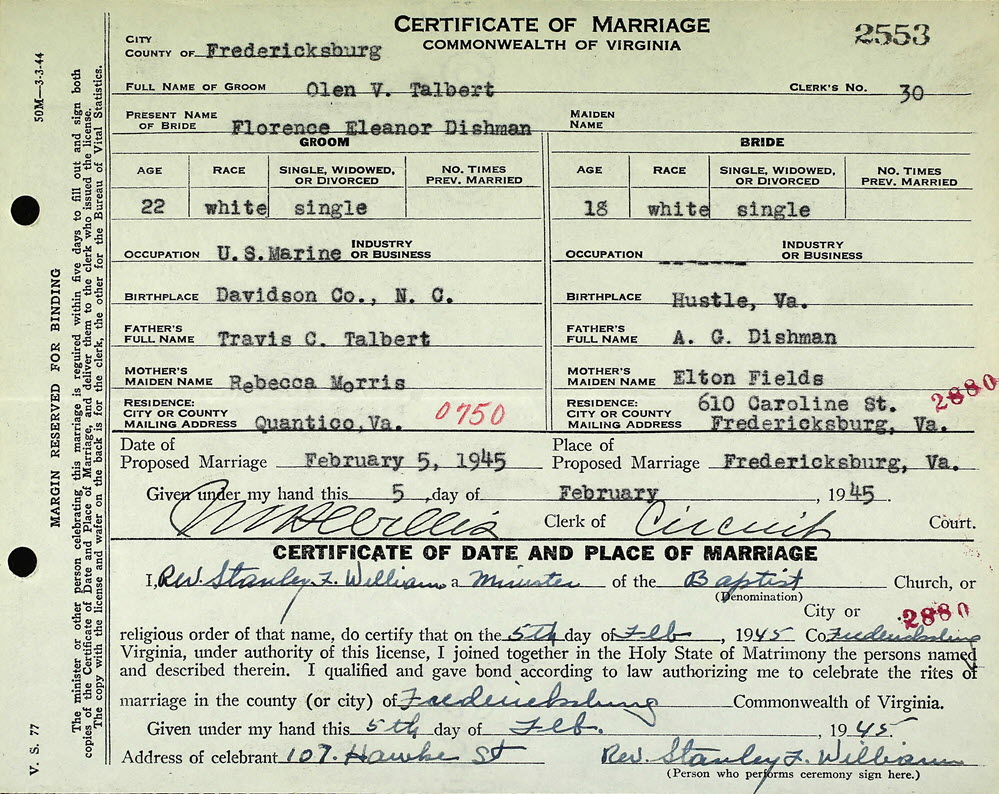 CERTIFICATE OF MARRIAGE
COMMONWEALTH OF VIRGINIA
2553
CITY
COUNTY OF Fredericksburg
FULL NAME OF GROOM Olen V. Talbert CLERK'S NO. 30
PRESENT NAME OF BRIDE Florence Eleanor Dishman MAIDEN NAME
GROOM BRIDE
AGE RACE SINGLE, WIDOWED, OR DIVORCED NO. TIMES PREV. MARRIED AGE RACE SINGLE, WIDOWED, OR DIVORCED NO. TIMES PREV. MARRIED
22 white single 18 white single
OCCUPATION U.S.Marine INDUSTRY OR BUSINESS OCCUPATION INDUSTRY OR BUSINESS
BIRTHPLACE Davidson Co., N. C. BIRTHPLACE Hustle, Va.
FATHER'S FULL NAME Travis C. Talbert FATHER'S FULL NAME A. G. Dishman
MOTHER'S MAIDEN NAME Rebecca Morris MOTHER'S MAIDEN NAME Elton Fields
RESIDENCE: CITY OR COUNTY MAILING ADDRESS Quantico,Va. 0750 RESIDENCE: CITY OR COUNTY MAILING ADDRESS 610 Caroline St. Fredericksburg, Va. 2880
Date of Proposed Marriage February 5, 1945 Place of Proposed Marriage Fredericksburg, Va.
Given under my hand this 5 day of February, 1945
Willis Clerk of Circuit Court.
CERTIFICATE OF DATE AND PLACE OF MARRIAGE
I, Rev. Stanley F. Williams a Minister of the Baptist Church, or
(Denomination)
City or 2880
religious order of that name, do certify that on the 5th day of Feb, 1945 Co Fredericksburg
Virginia, under authority of this license, I joined together in the Holy State of Matrimony the persons named
and described therein. I qualified and gave bond according to law authorizing me to celebrate the rites of
marriage in the county (or city) of Fredericksburg Commonwealth of Virginia.
Given under my hand this 5th day of Feb. , 1945.
Address of celebrant 107. Hawke St Rev. Stanley F. Williams
(Person who performs ceremony sign here.)
50M—3-3-44
MARGIN RESERVED FOR BINDING
V. S. 77
The minister or other person celebrating this marriage is required within five days to fill out and sign both
copies of the Certificate of Date and Place of Marriage, and deliver them to the clerk who issued the license.
The copy with the license and wafer on the back is for the clerk, the other for the Bureau of Vital Statistics.